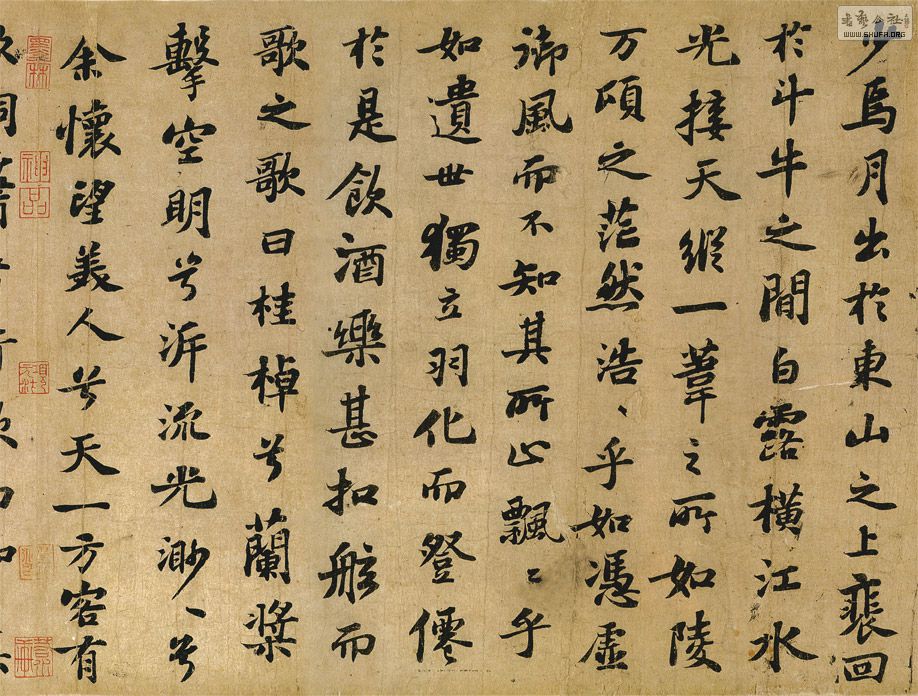 少焉月出於東山之上裴回
於斗牛之間白露橫江水
光接天縱一葦之所如陵
万頃之茫然浩〻乎如憑虛
御風而不知其所止飄〻乎
如遺世獨立羽化而登僊
於是飲酒樂甚扣舷而
歌之歌曰桂棹兮蘭槳
擊空明兮泝流光渺〻兮
余懷望美人兮天一方客有
神品
WWW.SHUFA.ORG